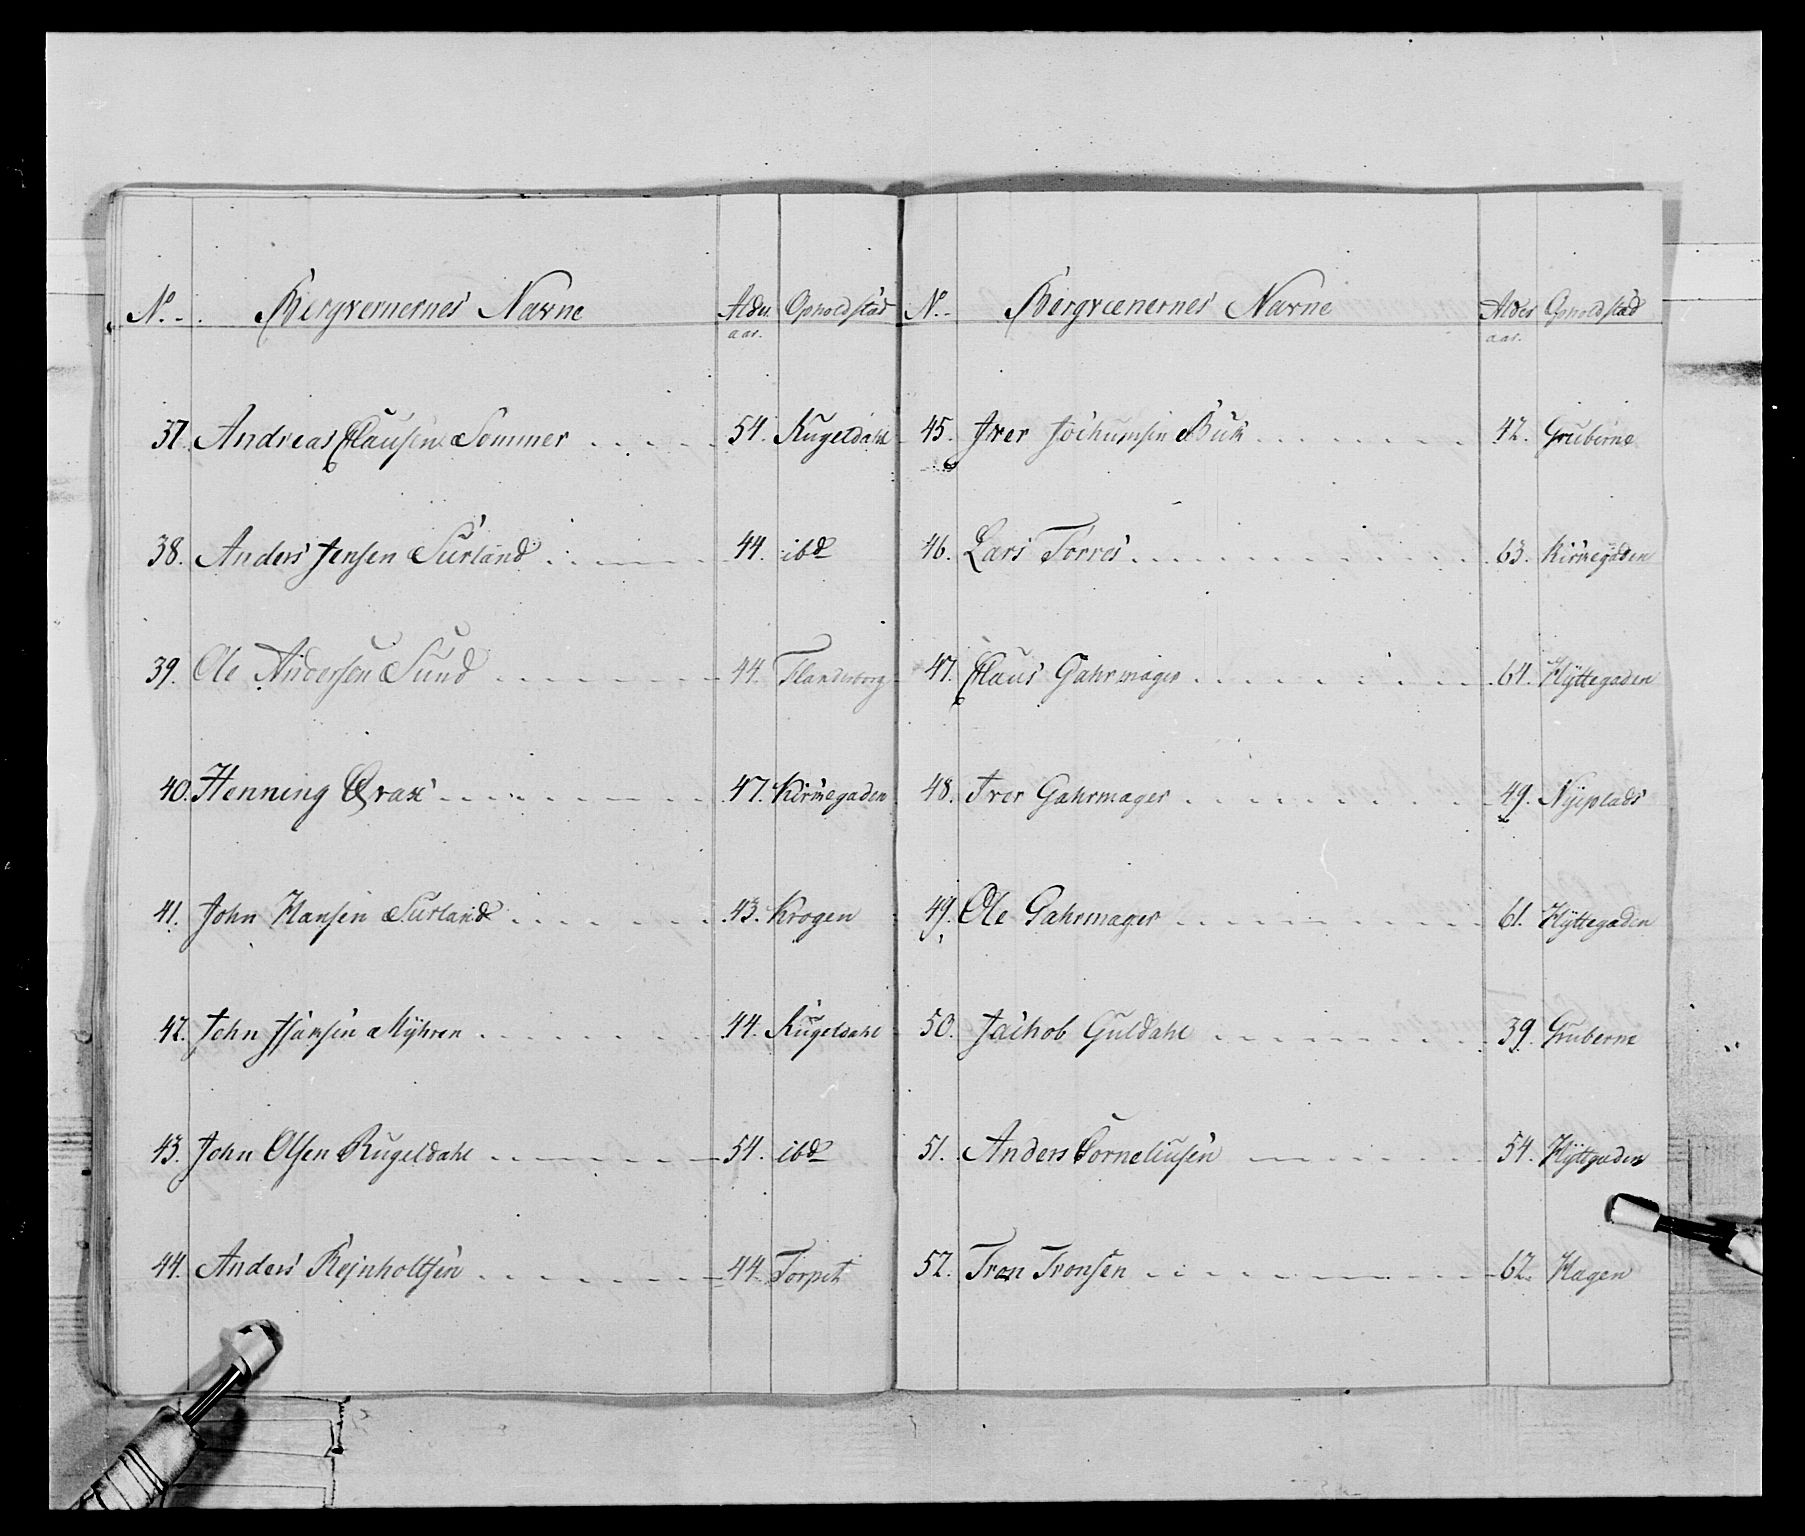 No. Bergvernernes Navne Alder aar. Opholdstad
37. Andreas Clausen Sommer 54. Kugeldahl
38. Anders Jensen Surland 44. ibd
39. Ole Andersen Sund 44. Flanderborg
40. Henning Qvax 47. Kirkegaden
41. John Hansen Surland 43. Krogen
42. John Hansen Myhren 44. Kugeldahl
43. John Olsen Kugeldahl 54. ibd
44. Anders Rejnholtsen 44. Torpet
No. Bergværnernes Navne Alder aar. Opholdstad
45. Iver Jochumsen Buk 42. Gruberne
46. Lars Torres 63. Kirkegaden
47. Claus Gahrmager 64. Hÿttegaden
48. Iver Gahrmager 49. Nÿeplads
49. Ole Gahrmager 61. Hÿttegaden
50. Jachob Guldahl 39. Gruberne
51. Anders Corneliusen 54. Hÿttgaden
52. Tron Tronsen 62. Hagen